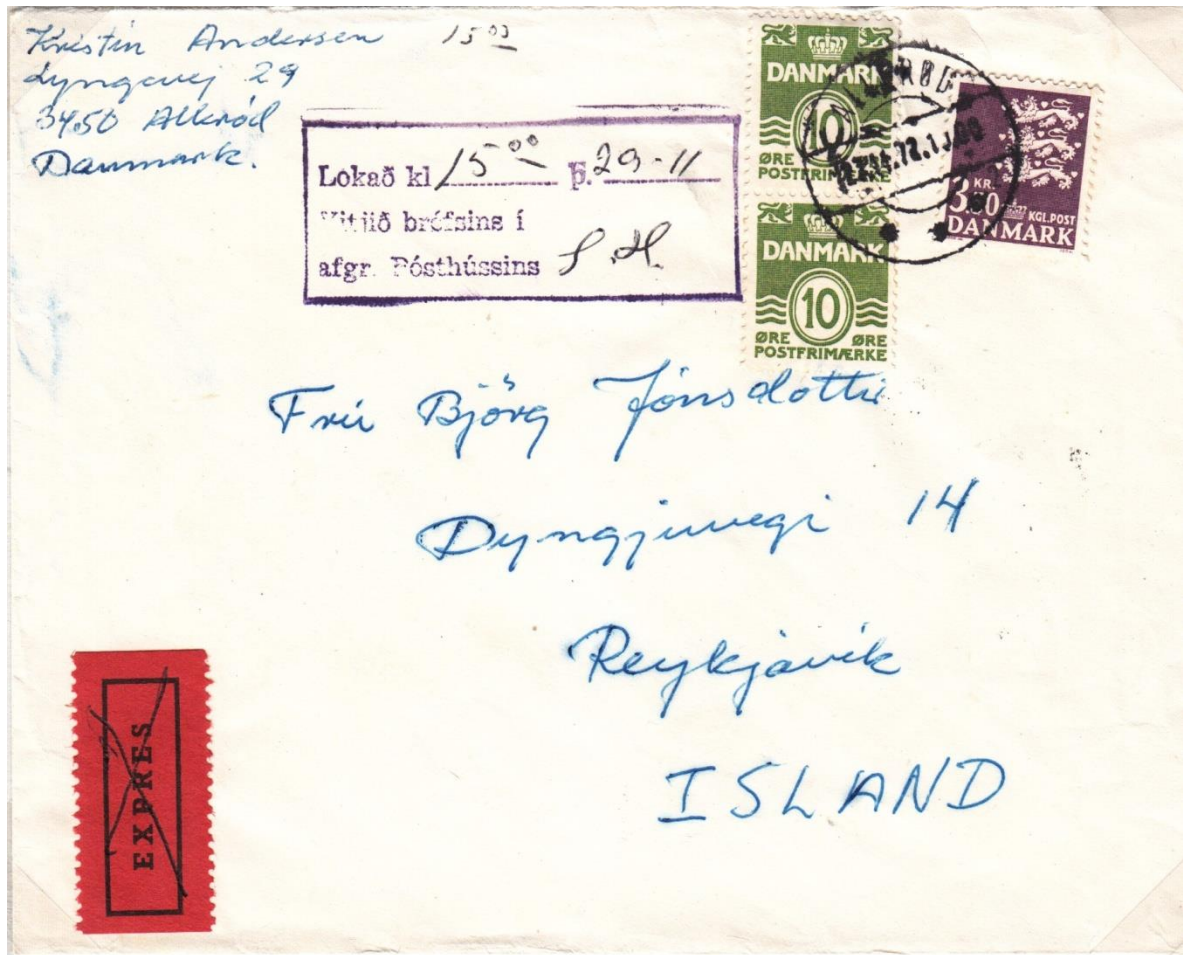 Kristín Andersen 15⁰³
Lyngevej 29
3450 Allerød
Danmark.
Lokað kl 15⁰⁰ þ. 29-11
Vitjið bréfsins í
afgr. Pósthússins S.H.
DANMARK
10
ØRE
POSTFRIMÆRKE
DANMARK
10
ØRE ØRE
POSTFRIMÆRKE
KR.
KGL.POST
DANMARK
Frú Björg Jónsdóttir
Dyngjuvegi 14
Reykjavík
ISLAND
EXPRES